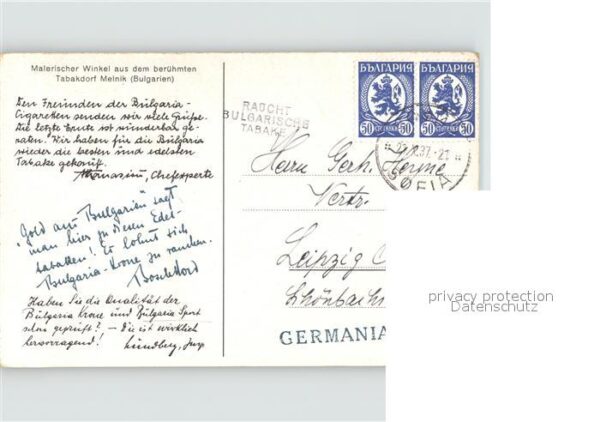 Malerischer Winkel aus dem berühmten
Tabakdorf Melnik (Bulgarien)
Den Freunden der Bulgaria-
Cigaretten senden wir viele Grüße.
Die letzte Ernte ist wunderbar ge-
raten. Wir haben für die Bulgaria
wieder die besten und edelsten
Tabake gekauft.
Chefexperte
"Gold aus Bulgarien" sagt
man hier zu diesen Edel-
tabaken! Es lohnt sich
Bulgaria-Krone zu rauchen.
Haben Sie die Qualität der
Bulgaria Krone und Bulgaria Sport
schon geprüft? – die ist wirklich
hervorragend!
БЪЛГАРИЯ
БЪЛГАРИЯ
50 50
50 50
RAUCHT
BULGARISCHE
TABAKE
37
SOFIA
Herrn Gerh.
Vertr.
Leipzig C
Schönbach
GERMANIA
privacy protection
Datenschutz